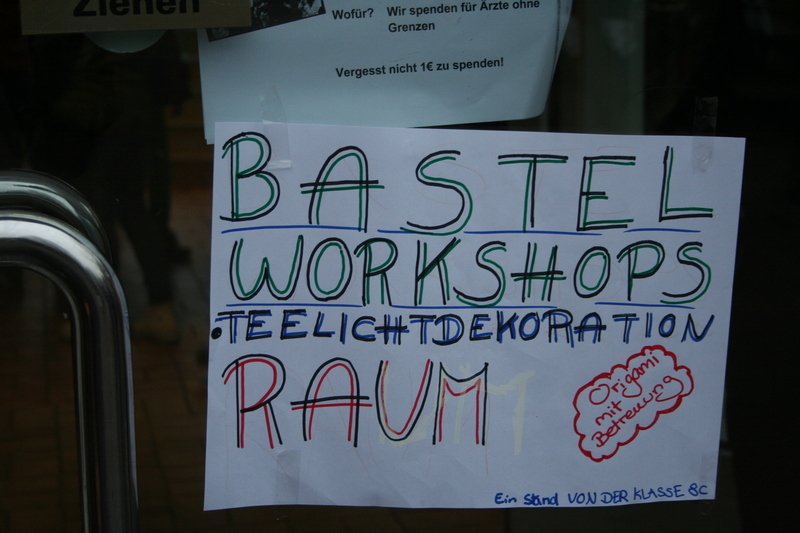 Ziehen
Wofür? Wir spenden für Ärzte ohne
Grenzen
Vergesst nicht 1€ zu spenden!
BASTEL
WORKSHOPS
•TEELICHTDEKORATION
RAUM
Origami
mit
Betreuung
Ein Stand VON DER KLASSE 8C